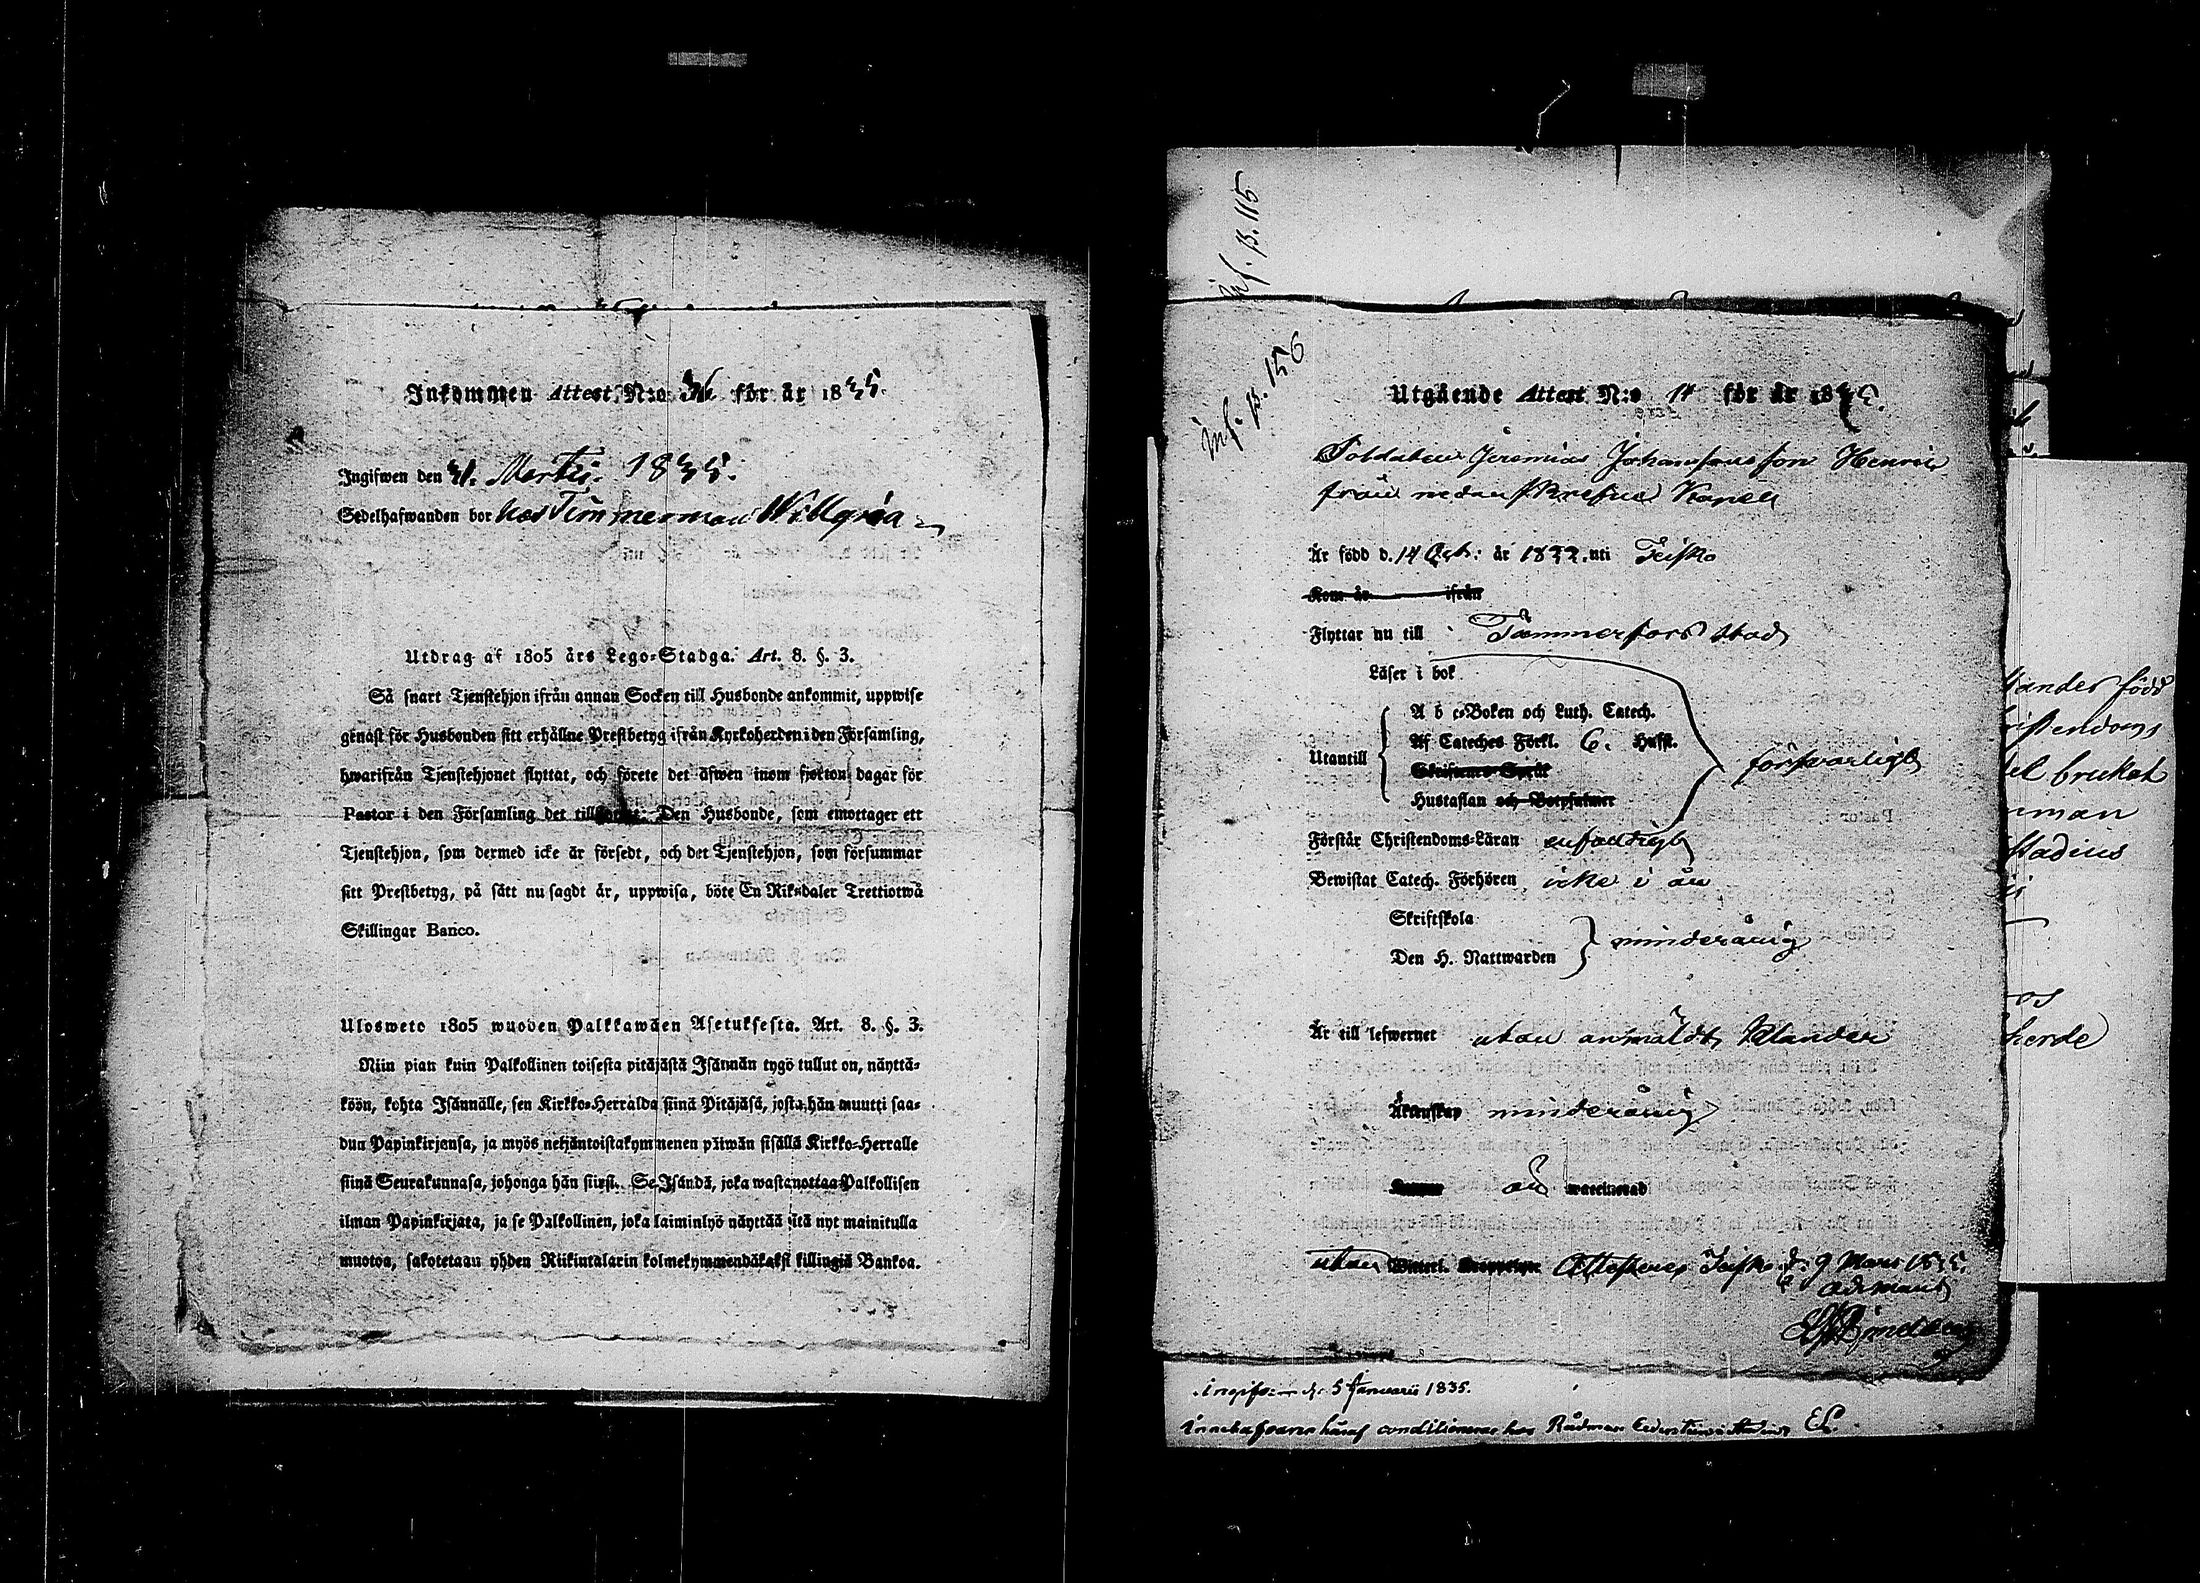 Inkommen Attest N:o 36 för år 1835.
Ingifwen den 31. Martii. 1835.
Sedelhafwanden bor hos Timmerman Willgrén
Utdrag af 1805 års Lego-Stadga. Art. 8. §. 3.
Så snart Tjenstehjon ifrån annan Socken till Husbonde ankommit, uppwise
genast för Husbonden sitt erhållne Prestbetyg ifrån Kyrkoherden i den Församling,
hwarifrån Tjenstehjonet flyttat, och förete det äfwen inom fjorton dagar för
Pastor i den Församling det Den Husbonde, som emottager ett
Tjenstehjon, som dermed icke är försedt, och det Tjenstehjon, som försummar
sitt Prestbetyg, på sätt nu sagdt är, uppwisa, böte En Riksdaler Trettiotwå
Skillingar Banco.
Ulosweto 1805 wuoden Palkkawäen Asetuksesta. Art. 8. §. 3.
Niin pian kuin Palkollinen toisesta pitäjästä Isännän tygö tullut on, näyttä-
köön, kohta Isännälle, sen Kirkko-Herralda siinä Pitäjäsä, josta hän muutti saa-
dun Papinkirjansa, ja myös neljäntoistakymmenen päiwän sisällä Kirkko-Herralle
siinä Seurakunnasa, johonga hän siirsi. Se Isändä, joka wastanottaa Palkollisen
ilman Papinkirjata, ja se Palkollinen, joka laiminlyö näyttää sitä nyt mainitulla
muotoa, sakotetaan yhden Riikintalarin kolmekymmendäkaksi killingiä Bankoa.
inf. p. 115
inf. p. 156
Utgående Attest N:o 14 för år 1835.
Soldaten Jeremias Johanssons son Henric
från
Är född d. 14 Oct: år 1822. uti Teisko
Kom år ifrån
Flyttar nu till Tammerfors stad
Läser i bok
A b c-Boken och Luth. Catech.
Utantill Af Cateches Förkl. 6. Hufst. försvarligt
Skriftenes Språk
Hustaflan och Botpsalmer
Förstår Christendoms-Läran enfaldigt
Bewistat Catech. Förhören icke i år
Skriftskola
Den H. Nattwarden minderårig
Är till lefwernet utan anmäldt klander
Äktenskap minderårig
vaccinerad
utan Attesterar Teisko d. 9 Mars 1835.
ander född
istendoms
el brukat
man
stadius
os
herde
ingifven d. 5 Januarii 1835.
conditionerar hos Rådman